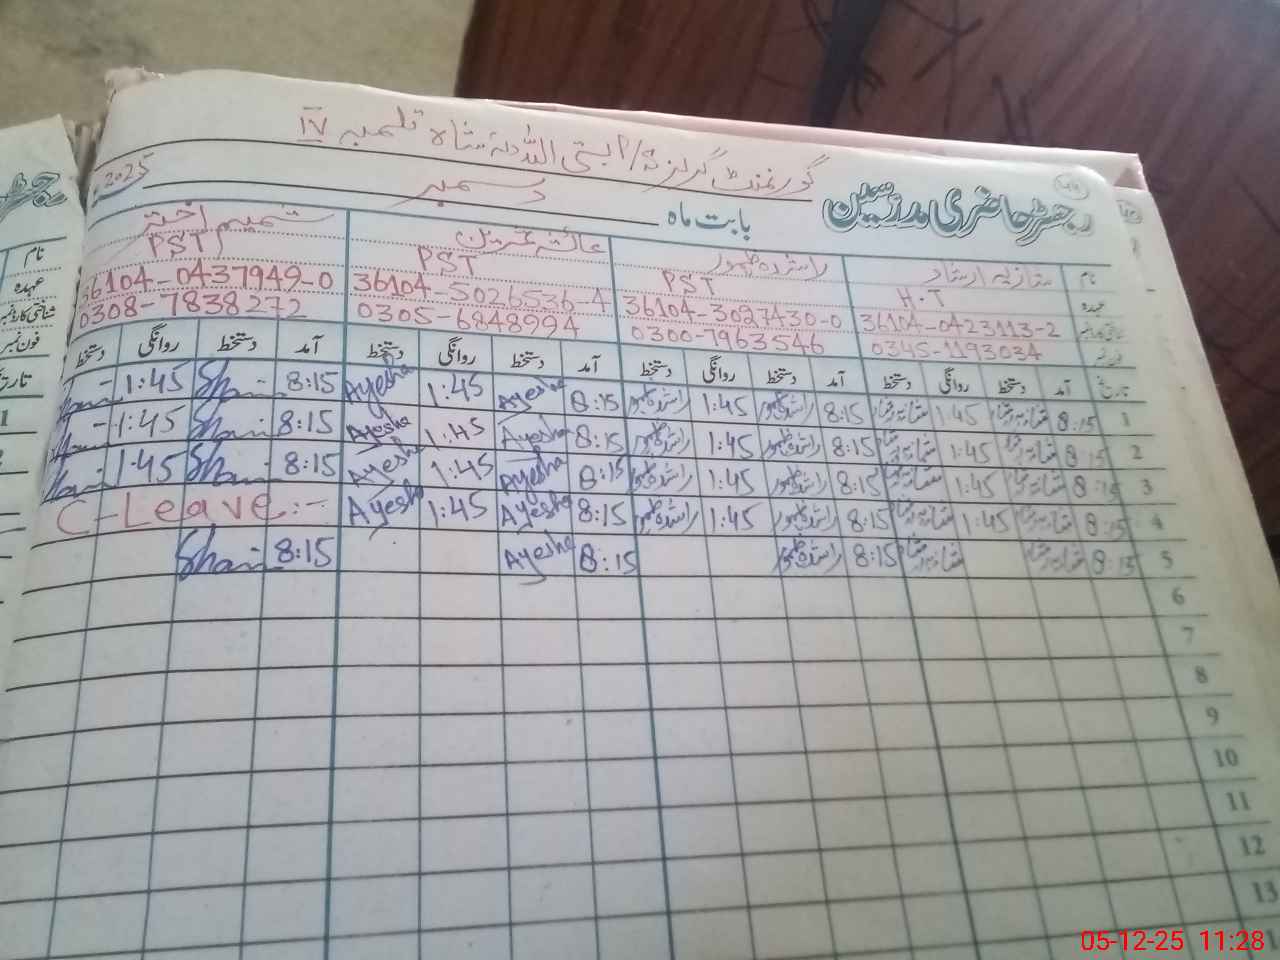 گورنمنٹ گرلز پ/س بستی اللہ دتہ شاہ تلمبہ IV
رجسٹر حاضری مدرسین
بابت ماہ دسمبر 2025
نام شازیہ ارشاد راشدہ ظہور عائشہ شمیم اختر
عہدہ H.T PST PST PST
36104-0423113-2 36104-3027430-0 36104-5026536-4 36104-0437949-0
0345-1193034 0300-7963546 0305-6848994 0308-7838272
تاریخ آمد دستخط روانگی دستخط آمد دستخط روانگی دستخط آمد دستخط روانگی دستخط آمد دستخط روانگی دستخط
1 8:15 1:45 8:15 راشدہ ظہور 1:45 راشدہ ظہور 8:15 Ayesha 1:45 Ayesha 8:15 1:45
2 8:15 1:45 8:15 راشدہ ظہور 1:45 راشدہ ظہور 8:15 Ayesha 1:45 Ayesha 8:15 1:45
3 8:15 1:45 8:15 راشدہ ظہور 1:45 راشدہ ظہور 8:15 Ayesha 1:45 Ayesha 8:15 1:45
4 8:15 1:45 8:15 راشدہ ظہور 1:45 راشدہ ظہور 8:15 Ayesha 1:45 Ayesha C-Leave:-
5 8:15 8:15 راشدہ ظہور 8:15 Ayesha 8:15
6
7
8
9
10
11
12
13
نام
عہدہ
شناختی کارڈ نمبر
فون نمبر
1
05-12-25 11:28